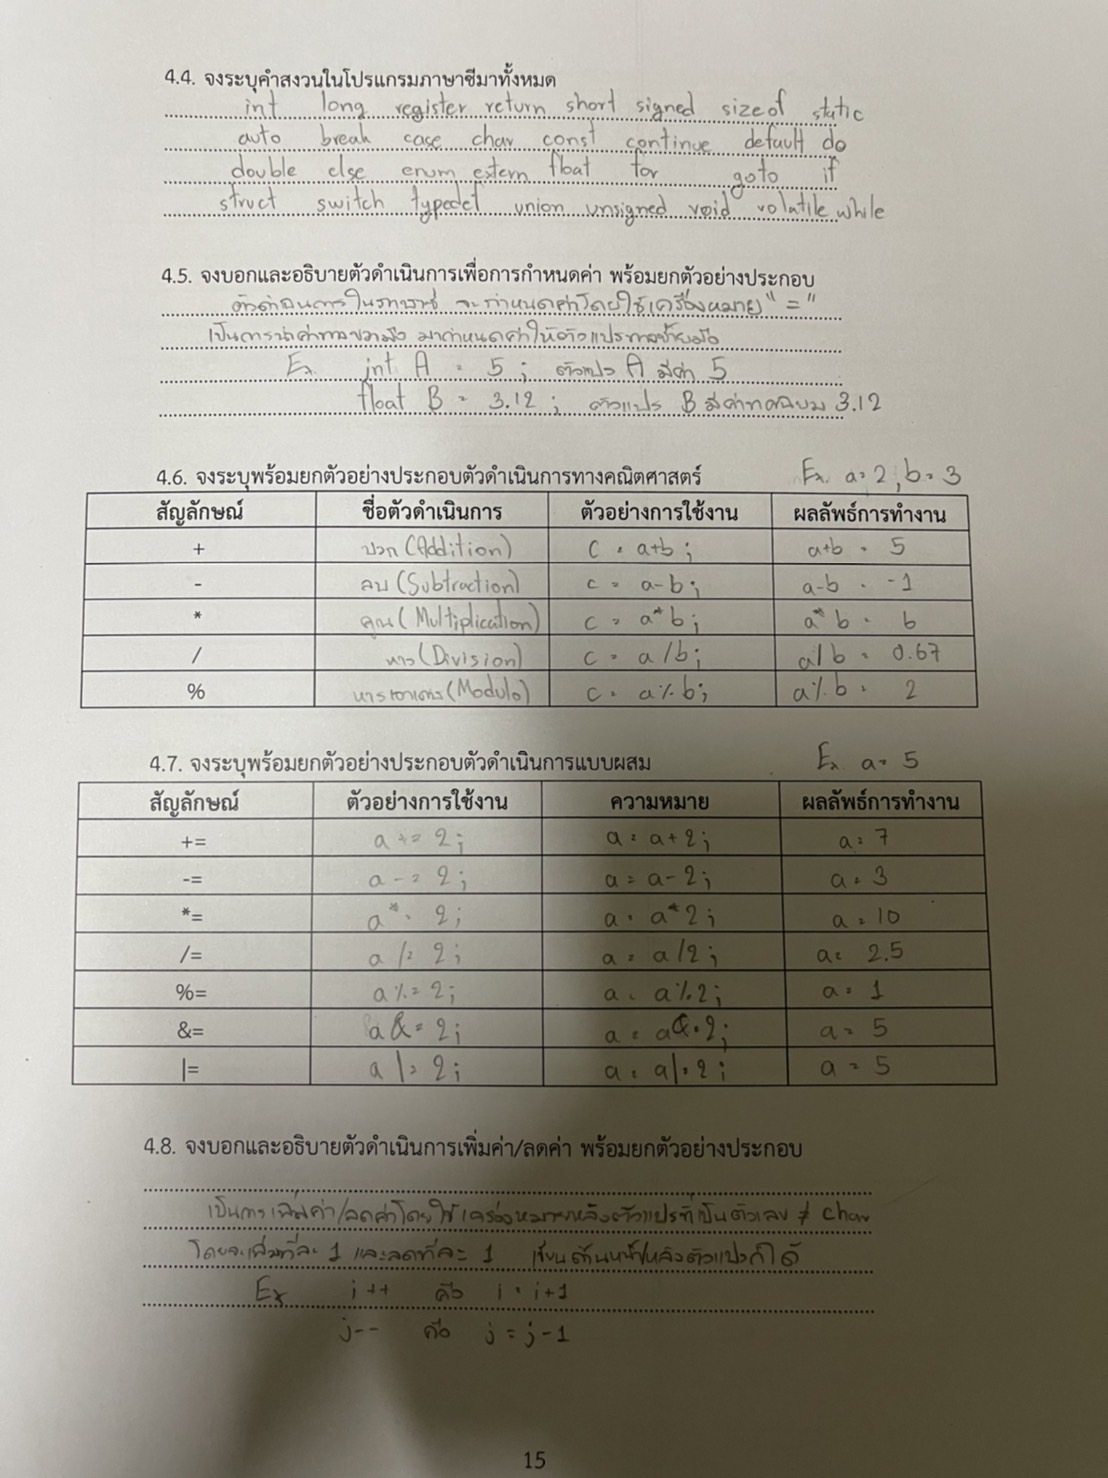 4.4. จงระบุคำสงวนในโปรแกรมภาษาซีมาทั้งหมด
int long register return short signed sizeof static
auto break case char const continue default do
double else enum extern float for goto if
struct switch typedef union unsigned void volatile while
4.5. จงบอกและอธิบายตัวดำเนินการเพื่อการกำหนดค่า พร้อมยกตัวอย่างประกอบ
ตัวดำเนินการในภาษาซี จะกำหนดค่าโดยใช้เครื่องหมาย "="
เป็นการนำค่าทางขวามือ มากำหนดค่าให้ตัวแปรทางซ้ายมือ
Ex. int A = 5 ; ตัวแปร A มีค่า 5
float B = 3.12 ; ตัวแปร B มีค่าทศนิยม 3.12
4.6. จงระบุพร้อมยกตัวอย่างประกอบตัวดำเนินการทางคณิตศาสตร์ Ex. a=2, b=3
สัญลักษณ์ ชื่อตัวดำเนินการ ตัวอย่างการใช้งาน ผลลัพธ์การทำงาน
+ บวก (Addition) c = a+b ; a+b = 5
- ลบ (Subtraction) c = a-b ; a-b = -1
* คูณ (Multiplication) c = a*b ; a*b = 6
/ หาร (Division) c = a/b ; a/b = 0.67
% หารเอาเศษ (Modulo) c = a%b ; a%b = 2
4.7. จงระบุพร้อมยกตัวอย่างประกอบตัวดำเนินการแบบผสม Ex a= 5
สัญลักษณ์ ตัวอย่างการใช้งาน ความหมาย ผลลัพธ์การทำงาน
+= a += 2 ; a = a+2 ; a = 7
-= a -= 2 ; a = a-2 ; a = 3
*= a *= 2 ; a = a*2 ; a = 10
/= a /= 2 ; a = a/2 ; a = 2.5
%= a %= 2 ; a = a%2 ; a = 1
&= a &= 2 ; a = a&=2 ; a = 5
|= a |= 2 ; a = a|=2 ; a = 5
4.8. จงบอกและอธิบายตัวดำเนินการเพิ่มค่า/ลดค่า พร้อมยกตัวอย่างประกอบ
เป็นการเพิ่มค่า/ลดค่าโดยใช้เครื่องหมายหลังตัวแปรที่เป็นตัวเลข ≠ char
โดยจะเพิ่มทีละ 1 และลดทีละ 1 เขียนด้านหน้า/หลังตัวแปรก็ได้
Ex i++ คือ i = i+1
j-- คือ j = j-1
15